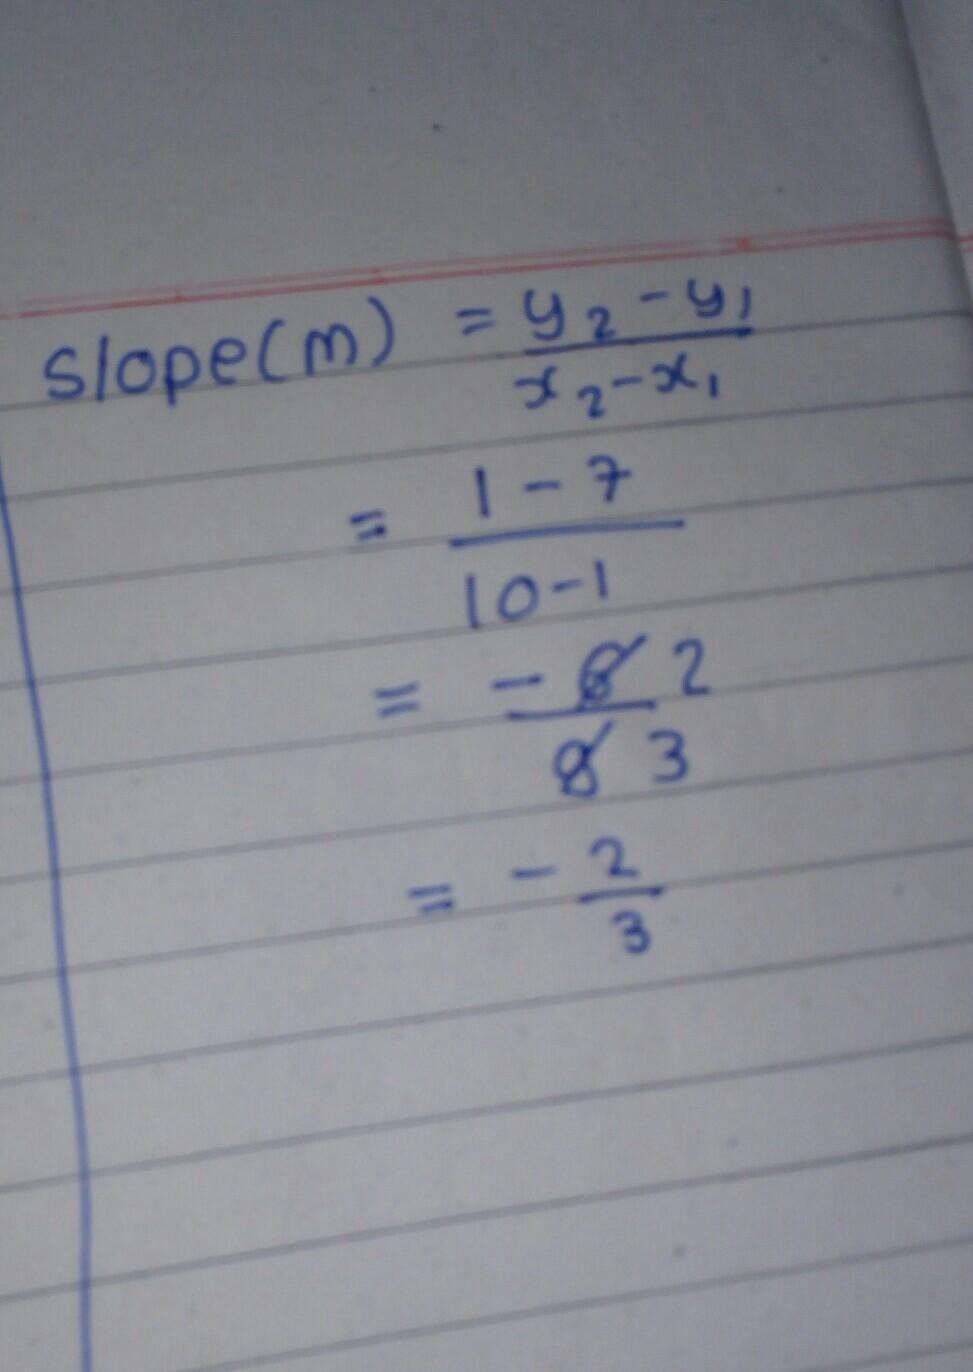 slope(m) = y₂ - y₁
x₂ - x₁
= 1 - 7
10 - 1
= - 6 2
9 3
= - 2
3